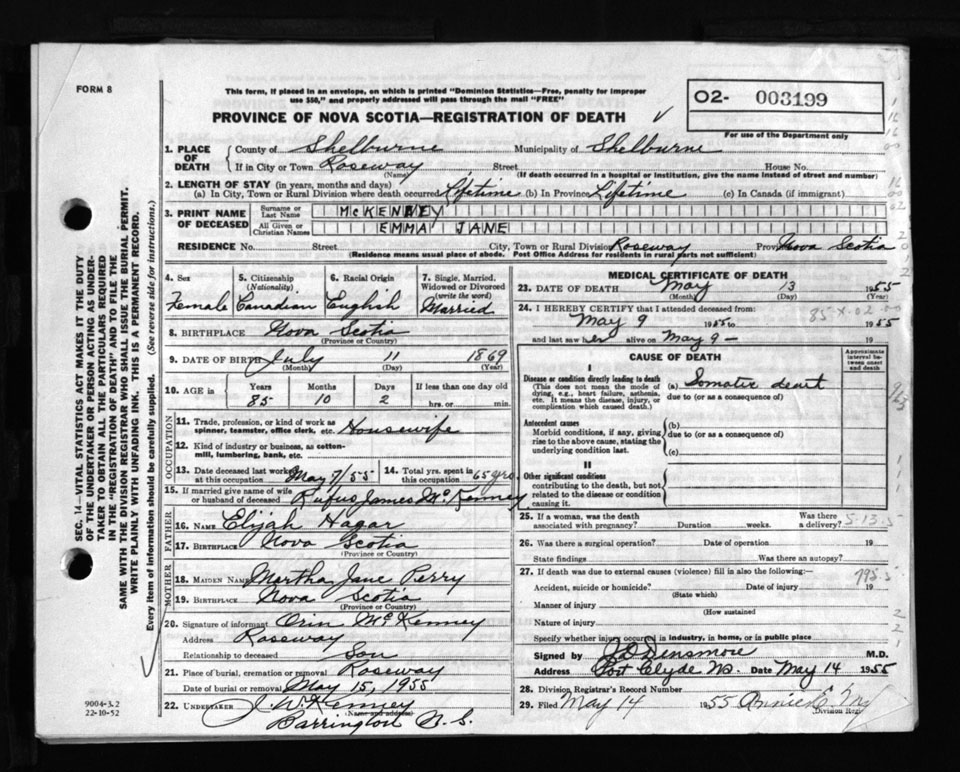 FORM 8
This form, if placed in an envelope, on which is printed "Dominion Statistics—Free, penalty for improper
use $50," and properly addressed will pass through the mail "FREE".
PROVINCE OF NOVA SCOTIA—REGISTRATION OF DEATH
O2- 003199
For use of the Department only
1. PLACE OF DEATH County of Shelburne Municipality of Shelburne
If in City or Town Roseway Street House No.
(Name) (If death occurred in a hospital or institution, give the name instead of street and number)
2. LENGTH OF STAY (in years, months and days)
(a) In City, Town or Rural Division where death occurred Lifetime (b) In Province Lifetime (c) In Canada (if immigrant)
3. PRINT NAME OF DECEASED Surname or Last Name McKENNEY
All Given or Christian Names EMMA JANE
RESIDENCE No. Street City, Town or Rural Division Roseway Prov. Nova Scotia
(Residence means usual place of abode. Post Office Address for residents in rural parts not sufficient)
4. Sex Female
5. Citizenship (Nationality) Canadian
6. Racial Origin English
7. Single, Married, Widowed or Divorced (write the word) Married
8. BIRTHPLACE Nova Scotia
(Province or Country)
9. DATE OF BIRTH July 11 1869
(Month) (Day) (Year)
10. AGE in Years Months Days If less than one day old
85 10 2 hrs. or min.
OCCUPATION
11. Trade, profession, or kind of work as spinner, teamster, office clerk, etc. Housewife
12. Kind of industry or business, as cotton-mill, lumbering, bank, etc.
13. Date deceased last worked at this occupation May 7/55
14. Total yrs. spent in this occupation 65 yrs.
15. If married give name of wife or husband of deceased Rufus James McKenney
FATHER
16. NAME Elijah Hagar
17. BIRTHPLACE Nova Scotia
(Province or Country)
MOTHER
18. MAIDEN NAME Martha Jane Perry
19. BIRTHPLACE Nova Scotia
(Province or Country)
20. Signature of informant Orin McKenney
Address Roseway
Relationship to deceased Son
21. Place of burial, cremation or removal Roseway
Date of burial or removal May 15, 1955
22. UNDERTAKER J. W. Kenney
(Name and address)
Barrington N. S.
MEDICAL CERTIFICATE OF DEATH
23. DATE OF DEATH May 13 1955
(Month) (Day) (Year)
24. I HEREBY CERTIFY that I attended deceased from:
May 9 1955 to 1955
and last saw her alive on May 9 - 19
85-X-02
CAUSE OF DEATH
Approximate interval between onset and death
I
Disease or condition directly leading to death
(This does not mean the mode of dying, e.g., heart failure, asthenia, etc. It means the disease, injury, or complication which caused death.)
(a) Somatic death
due to (or as a consequence of)
Antecedent causes
Morbid conditions, if any, giving rise to the above cause, stating the underlying condition last.
(b)
due to (or as a consequence of)
(c)
II
Other significant conditions
contributing to the death, but not related to the disease or condition causing it.
25. If a woman, was the death associated with pregnancy? Duration weeks. Was there a delivery?
5-13-5
26. Was there a surgical operation? Date of operation 19
State findings Was there an autopsy?
27. If death was due to external causes (violence) fill in also the following:— 795.5
Accident, suicide or homicide? Date of injury 19
(State which)
Manner of injury
(How sustained
Nature of injury
Specify whether injury occurred in industry, in home, or in public place
Signed by J D Densmore M.D.
Address Port Clyde NS. Date May 14 1955
28. Division Registrar's Record Number
29. Filed May 14 1955 Annie E.
Division Reg
SEC. 14—VITAL STATISTICS ACT MAKES IT THE DUTY
OF THE UNDERTAKER OR PERSON ACTING AS UNDER-
TAKER TO OBTAIN ALL THE PARTICULARS REQUIRED
IN THE "REGISTRATION OF DEATH" AND TO FILE THE
SAME WITH THE DIVISION REGISTRAR WHO SHALL ISSUE THE BURIAL PERMIT.
WRITE PLAINLY WITH UNFADING INK. THIS IS A PERMANENT RECORD.
Every item of information should be carefully supplied. (See reverse side for instructions.)
9004-3.2
22-10-52